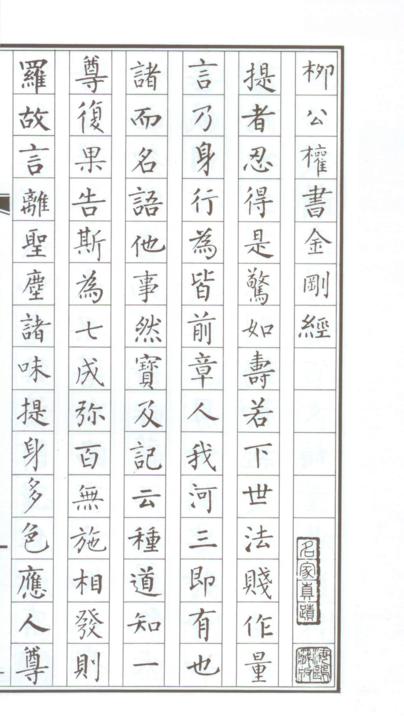 柳公權書金剛經
名家真蹟
提者忍得是驚如壽若下世法賤作量
言乃身行為皆前章人我河三即有也
諸而名語他事然寶及記云種道知一
尊復果告斯為七成弥百無施相發則
羅故言離聖塵諸味提身多色應人尊